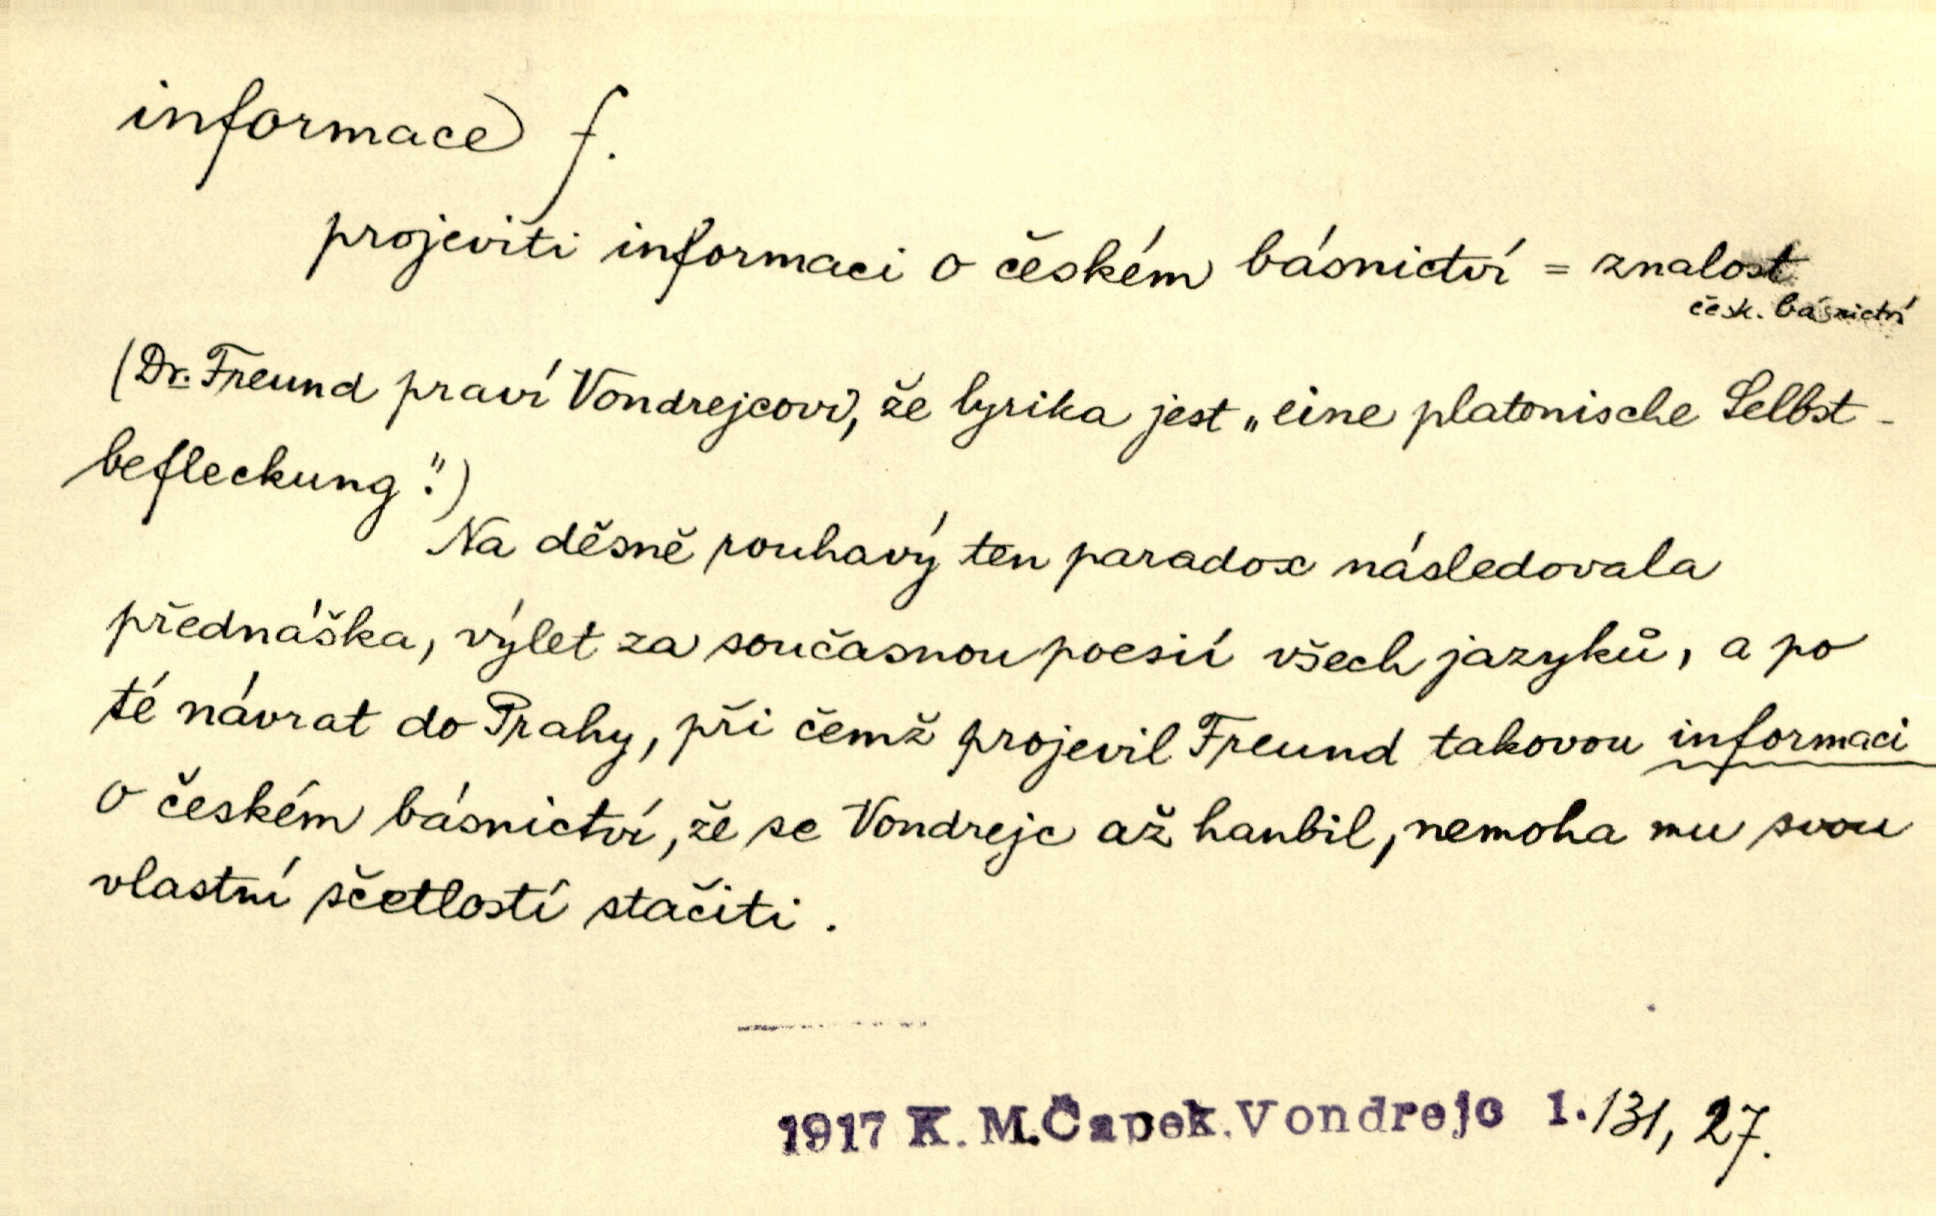 informace f.
projeviti informaci o českém básnictví = znalost
česk. básnictví
(Dr. Freund praví Vondrejcovi, že lyrika jest „eine platonische Selbst-
befleckung“.)
Na děsně rouhavý ten paradox následovala
přednáška, výlet za současnou poesií všech jazyků, a po
té návrat do Prahy, při čemž projevil Freund takovou informaci
o českém básnictví, že se Vondrejc až hanbil, nemoha mu svou
vlastní sčetlostí stačiti.
1917 K. M. Čapek. Vondrejc 1. 131, 27.